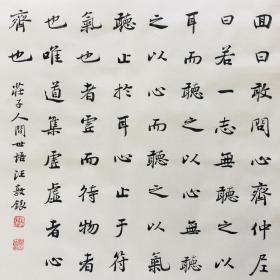 回曰敢問心齊仲尼
曰若一志無聽之以
耳而聽之以心無聽
之以心而聽之以氣
聽止於耳心止于符
氣也者虛而待物者
也唯道集虛虛者心
齊也
莊子人間世語汪敦銀